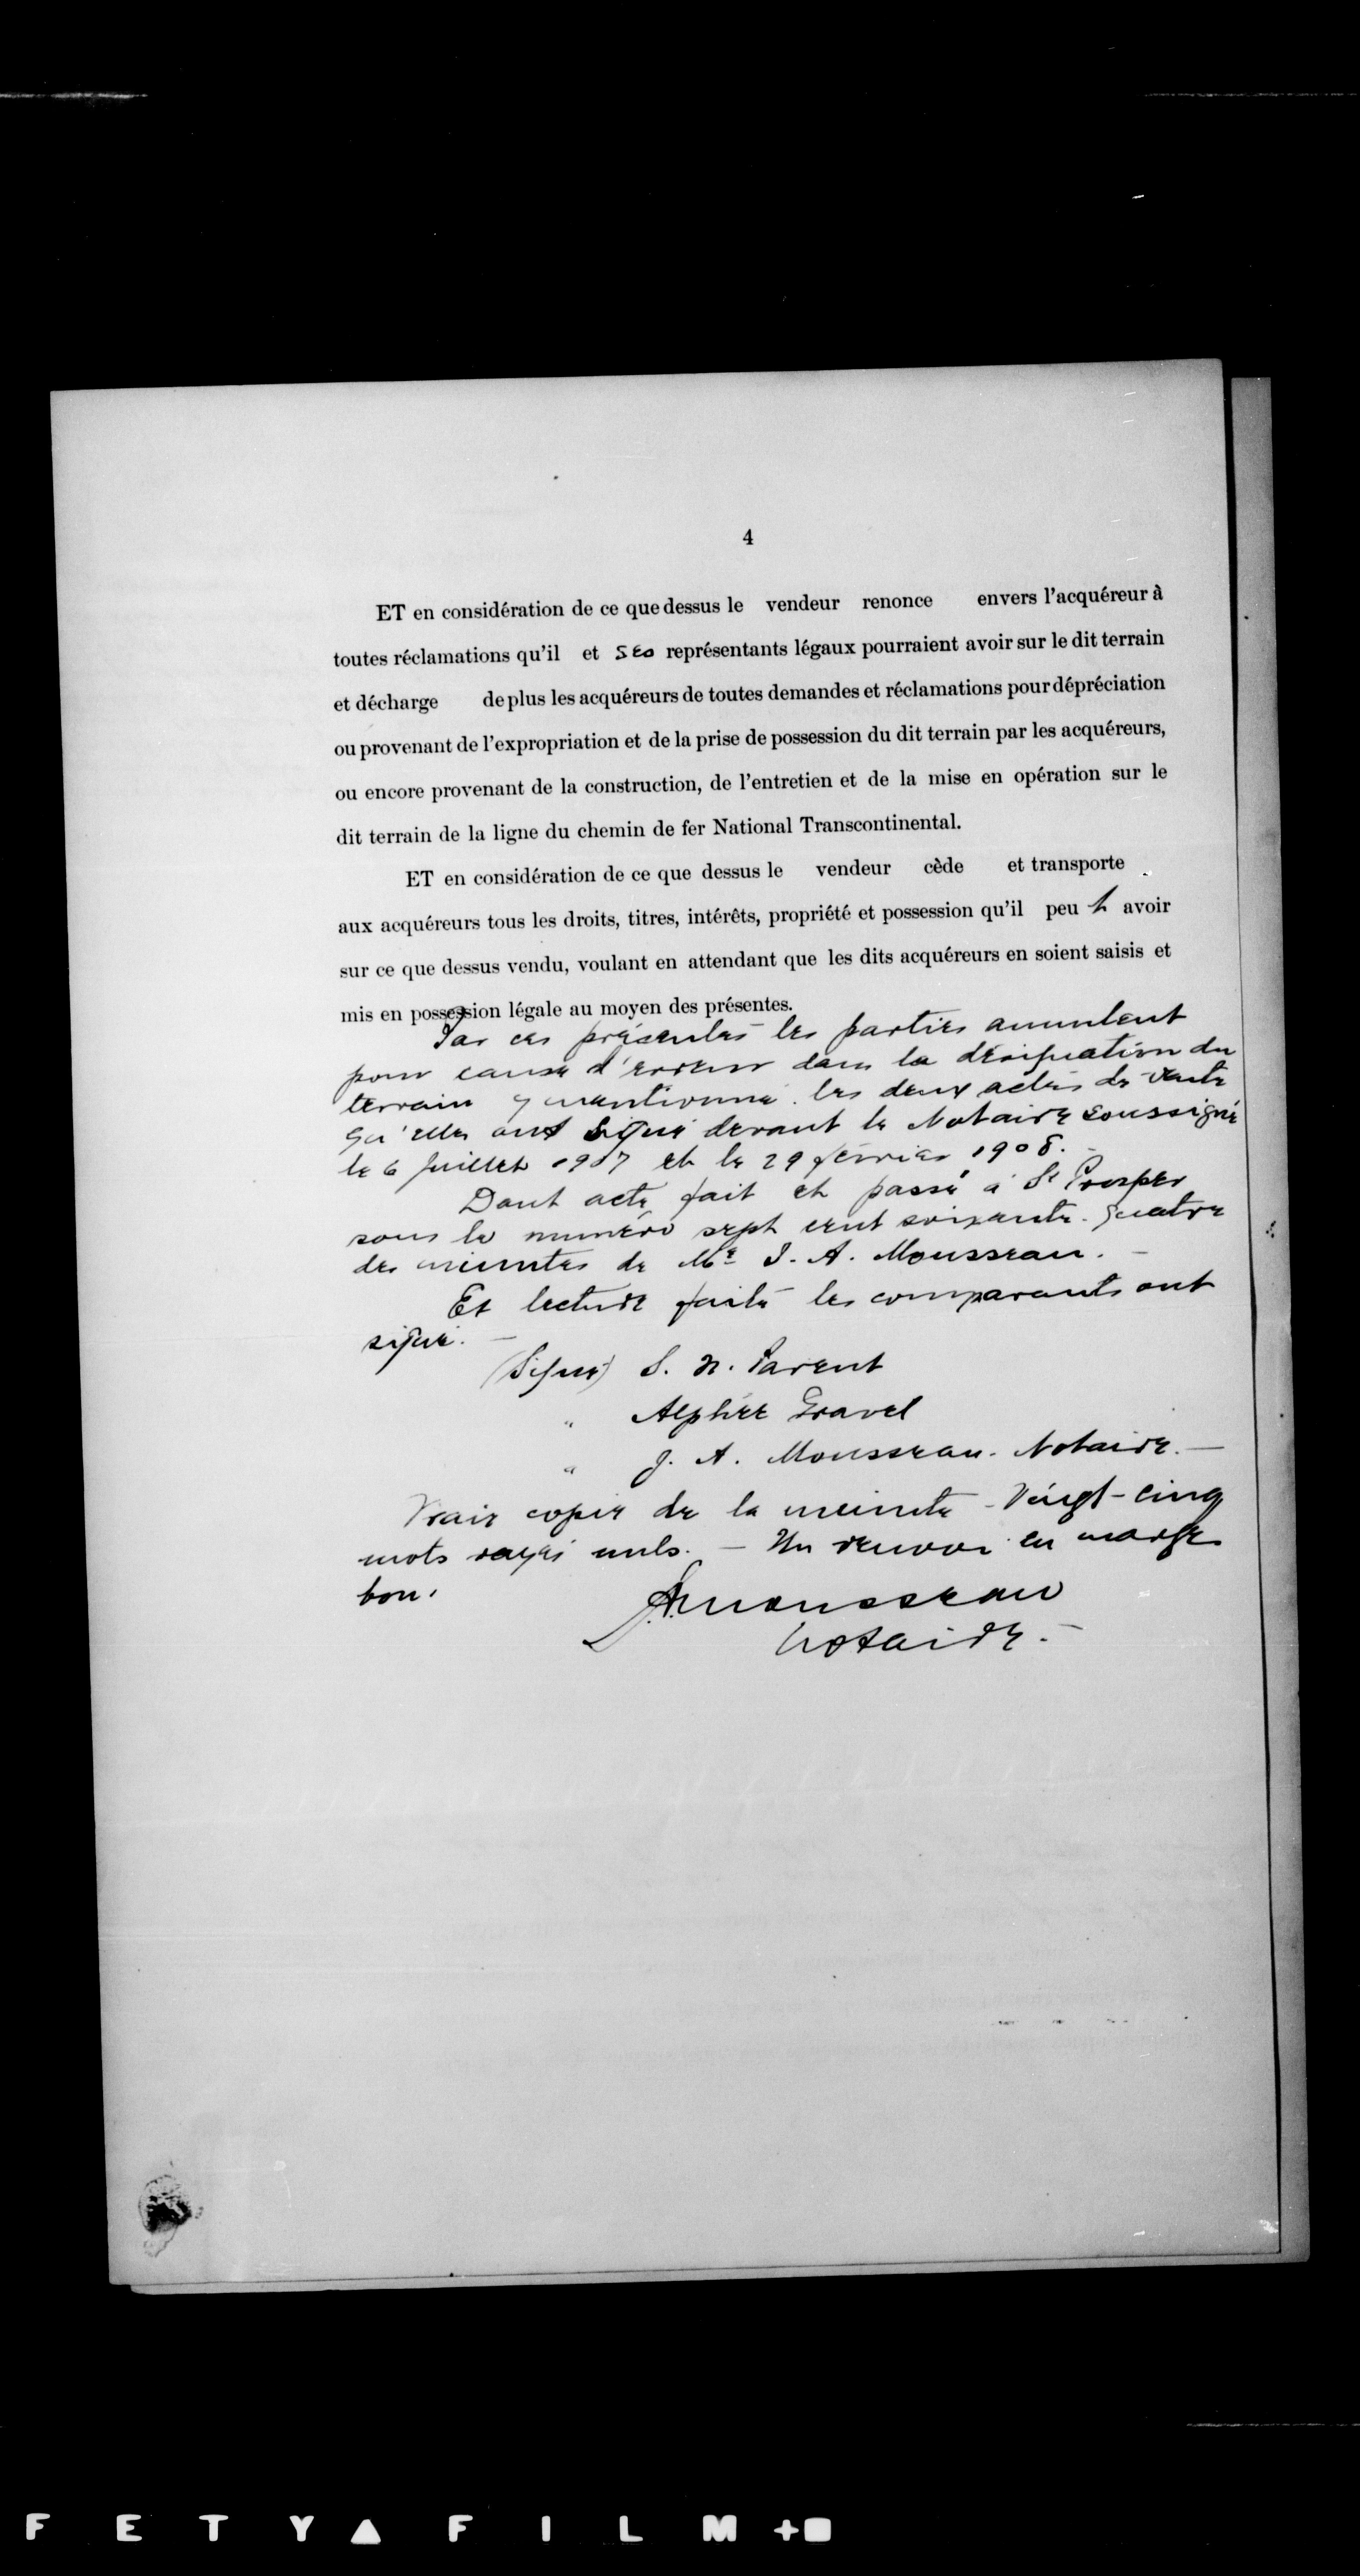 4
ET en considération de ce que dessus le vendeur renonce envers l'acquéreur à
toutes réclamations qu'il et ses représentants légaux pourraient avoir sur le dit terrain
et décharge de plus les acquéreurs de toutes demandes et réclamations pour dépréciation
ou provenant de l'expropriation et de la prise de possession du dit terrain par les acquéreurs,
ou encore provenant de la construction, de l'entretien et de la mise en opération sur le
dit terrain de la ligne du chemin de fer National Transcontinental.
ET en considération de ce que dessus le vendeur cède et transporte
aux acquéreurs tous les droits, titres, intérêts, propriété et possession qu'il peut avoir
sur ce que dessus vendu, voulant en attendant que les dits acquéreurs en soient saisis et
mis en possession légale au moyen des présentes.
Par ces présentes les parties annulent
pour cause d'erreur dans la désignation du
terrain y mentionné les deux actes de vente
qu'elles ont signé devant le Notaire soussigné
le 6 juillet 1907 et le 29 février 1908.
Dont acte fait et passé à St Prosper
sous le numéro sept cent soixante-quatre
des minutes de Mre J. A. Mousseau. —
Et lecture faite les comparants ont
signé. —
(Signé) S. N. Parent
" Alphée Gravel
" J. A. Mousseau. Notaire. —
Vraie copie de la minute - Vingt-cinq
mots rayés nuls. — Un renvoi en marge
bon.
J.A. Mousseau
Notaire. —
F E T Y F I L M +